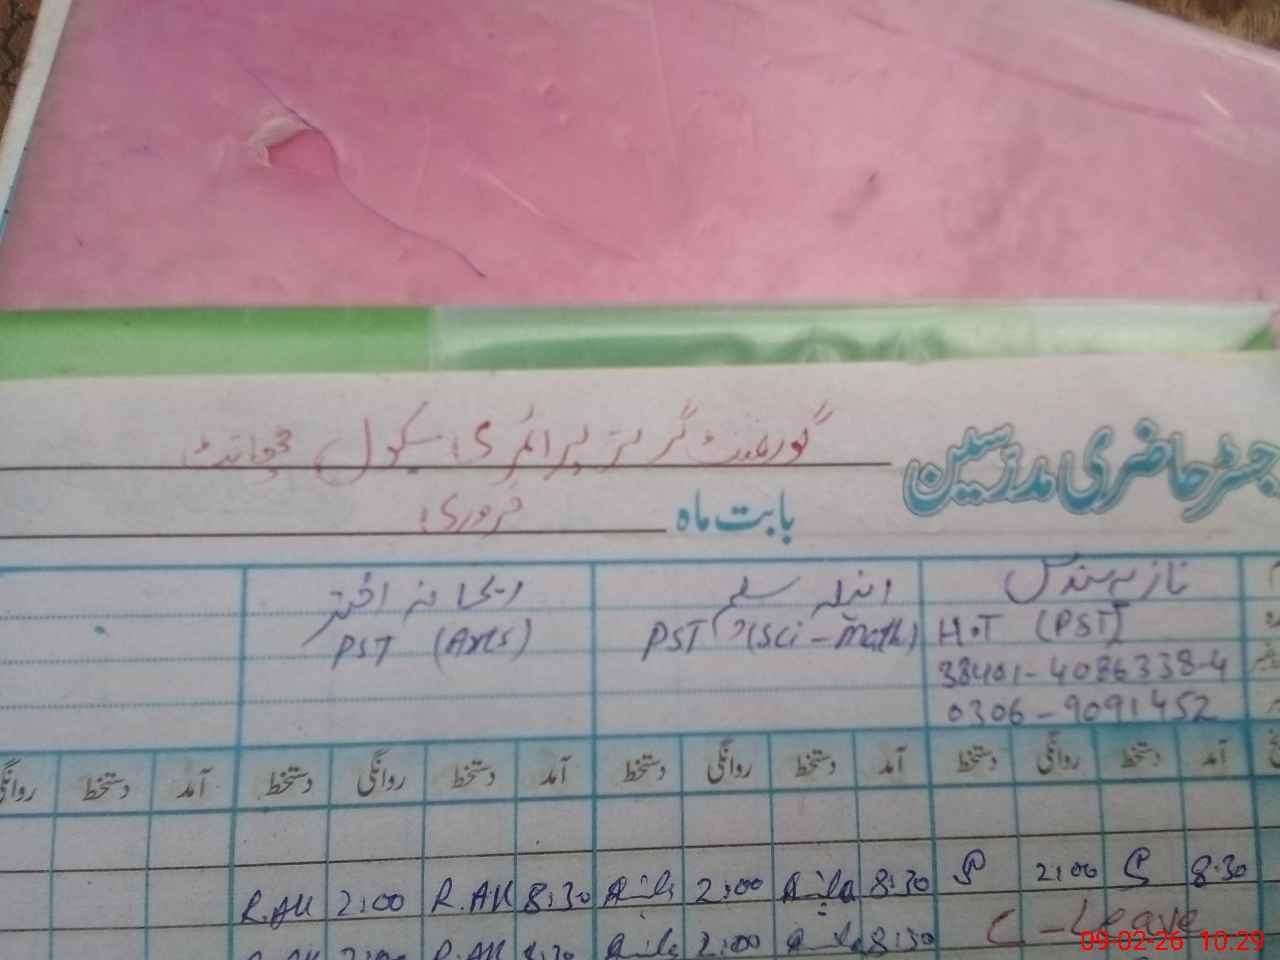 رجسٹر حاضری مدرسین گورنمنٹ گرلز پرائمری سکول
بابت ماہ فروری
نازیہ ریحانہ اختر
H.T (PST) PST (Sci - Math) PST (Arts)
38401-4086338-4
0306-9091452
آمد دستخط روانگی دستخط آمد دستخط روانگی دستخط آمد دستخط روانگی دستخط آمد دستخط روانگی
8:30 2:00 8:30 2:00 8:30 R.AK 2:00 R.AK
C-Leave 8:30 2:00 8:30 2:00
09-02-26 10:29